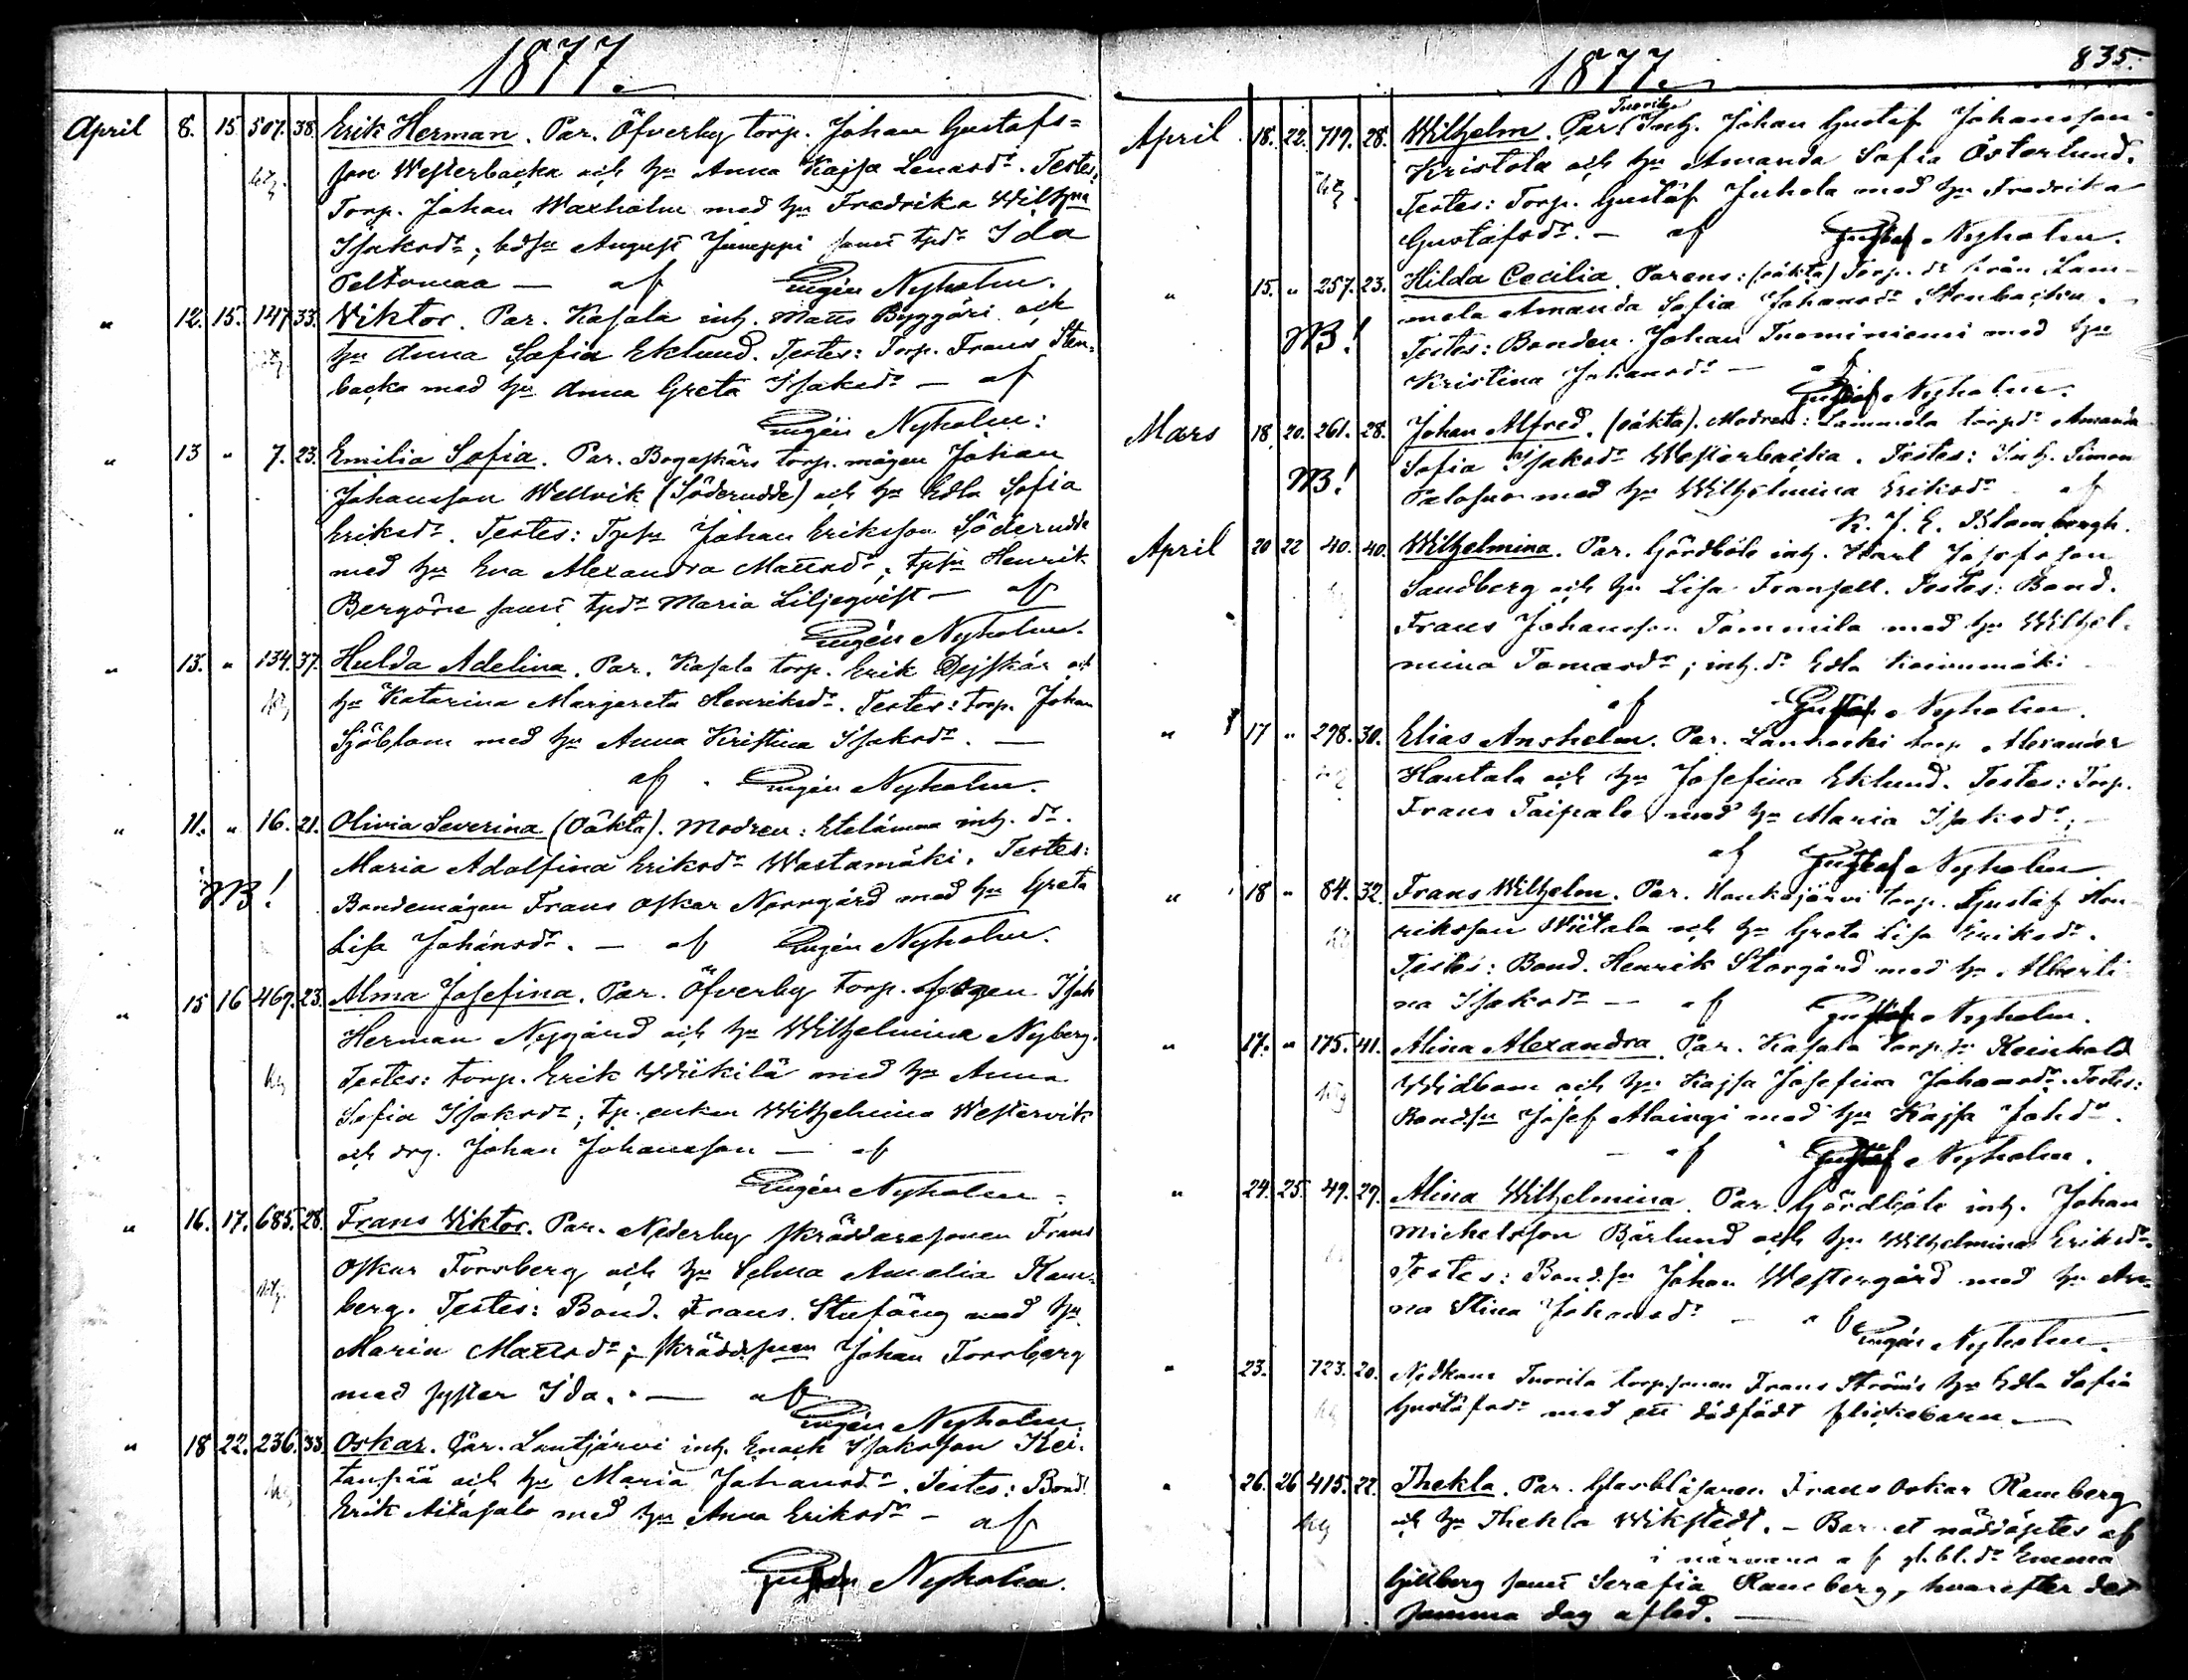 1877.
April 8. 15. 507. 38. Erik Herman. Par. Öfverby torp. Johan Gustafs=
son Westerbacka och hu Anna Kajsa Lenasdr. Testes:
Torp. Johan Waxholm med hu Fredrika Wilhna
Isaksdr; bdsn August Juneppi samt tpdr Ida
Peltomaa — af Eugén Nyholm.
" 12. 15. 147. 33. Viktor. Par. Kasala inh. Matts Byggäri och
hu Anna Sofia Eklund. Testes: Torp. Frans Sten-
backa med hu Anna Greta Isaksdr — af
Eugén Nyholm.
" 13 " 7. 23. Emilia Sofia. Par. Bogaskärs torp. mågen Johan
Johansson Wellvik (Söderudde) och hu Edla Sofia
Eriksdr. Testes: Tpsn Johan Eriksson Söderudde
med hu Eva Alexandra Mattsdr; tpsn Henrik
Bergöne samt tpdr Maria Liljeqvist — af
Eugén Nyholm.
" 13. " 134. 37. Hulda Adelina. Par. Kasala torp. Erik Dejskär och
hu Katarina Margareta Henriksdr. Testes: torp. Johan
Sjöblom med hu Anna Kristina Isaksdr. —
af Eugén Nyholm.
" 11. " 16. 21. Olivia Severina (Oäkta). Modren: Etelämaa inh. dr.
Maria Adolfina Eriksdr Wastamäki. Testes:
NB! Bondemågen Frans Oskar Norrgård med hu Greta
Lisa Johansdr. — af Eugén Nyholm.
" 15 16 469. 23. Alma Josefina. Par. Öfverby torp. Isak
Herman Nygård och hu Wilhelmina Nyberg.
Testes: torp. Erik Wiikilä med hu Anna
Sofia Isaksdr; tp. enkan Wilhelmina Westervik
och drg. Johan Johansson — af
Eugén Nyholm.
" 16. 17. 685. 28. Frans Viktor. Par. Nederby skräddaresonen Frans
Oskar Forsberg och hu Selma Amalia Ham-
berg. Testes: Bond. Frans Stufäng med hu
Maria Mattsdr; skräddsonen Johan Forsberg
med syster Ida. — af
Eugén Nyholm.
" 18 22. 236. 33. Oskar. Par. Lautjärvi inh. Enoch Isaksson Kei-
tanpää och hu Maria Johansdr. Testes: Bond.
Erik Aitasalo med hu Anna Eriksdr — af
Nyholm.
1877. 835.
April 18. 22. 719. 28. Wilhelm. Par. Tuorila Inh. Johan Gustaf Johansson
Kristola och hu Amanda Sofia Österlund.
Testes: Torp. Gustaf Juhola med hu Fredrika
Gustafsdr. — af Gustaf Nyholm.
" 15. " 257. 23. Hilda Cecilia. Parens: (oäkta) Torp. dr från Lam-
mela Amanda Sofia Johansdr Stenbacka.
NB! Testes: Bonden Johan Tuominiemi med hu
Kristina Johansdr — af
Gustaf Nyholm.
Mars 18 20. 261. 28. Johan Alfred. (oäkta). Modren: Lammela torpdr Amanda
Sofia Isaksdr Westerbacka. Testes: Inh. Simon
NB! Palosuo med hu Wilhelmina Eriksdr af
K. J. E. Blombergh.
April 20 22 40. 40. Wilhelmina. Par. Gårdböle inh. Karl Josefsson
Sandberg och hu Lisa Fransell. Testes: Bond.
Frans Johansson Tommila med hu Wilhel-
mina Tomasdr; inh. dr Edla
af Gustaf Nyholm.
" 17 " 298. 30. Elias Anshelm. Par. Lankoski torp Alexander
Hautala och hu Josefina Eklund. Testes: Torp.
Frans Taipale med hu Maria Isaksdr; —
af Gustaf Nyholm.
" 18 " 84. 32. Frans Wilhelm. Par. Honkajärvi torp. Gustaf Hen-
riksson Wiitala och hu Greta Lisa Eriksdr.
Testes: Bond. Henrik Storgård med hu Alberti-
na Isaksdr — af Gustaf Nyholm.
" 17. " 175. 41. Alina Alexandra. Par. Kasala torpsn Reinhold
Widbom och hu Kajsa Josefina Johansdr. Testes:
Bondsn Josef Alaingi med hu Kajsa Johdr.
— af Gustaf Nyholm.
" 24. 25. 49. 29. Alina Wilhelmina. Par. Gårdböle inh. Johan
Michelsson Bärlund och hu Wilhelmina Eriksdr.
Testes: Bondsn Johan Westergård med hu An-
na Stina Johansdr — af
Eugén Nyholm.
" 23. 723. 20. Nedkom Tuorila torpsonen Frans Ströms hu Edla Sofia
Gustafsdr med ett dödfödt flickebarn. —
" 26. 26 415. 22. Thekla. Par. Glasblåsaren Frans Oskar Ramberg
och hu Thekla Wikstedt. — Barnet nöddöptes af
i närvaro af gl.bl.dr Emma
Gillberg samt Serafia Ramberg, hvarefter det
samma dag afled. —